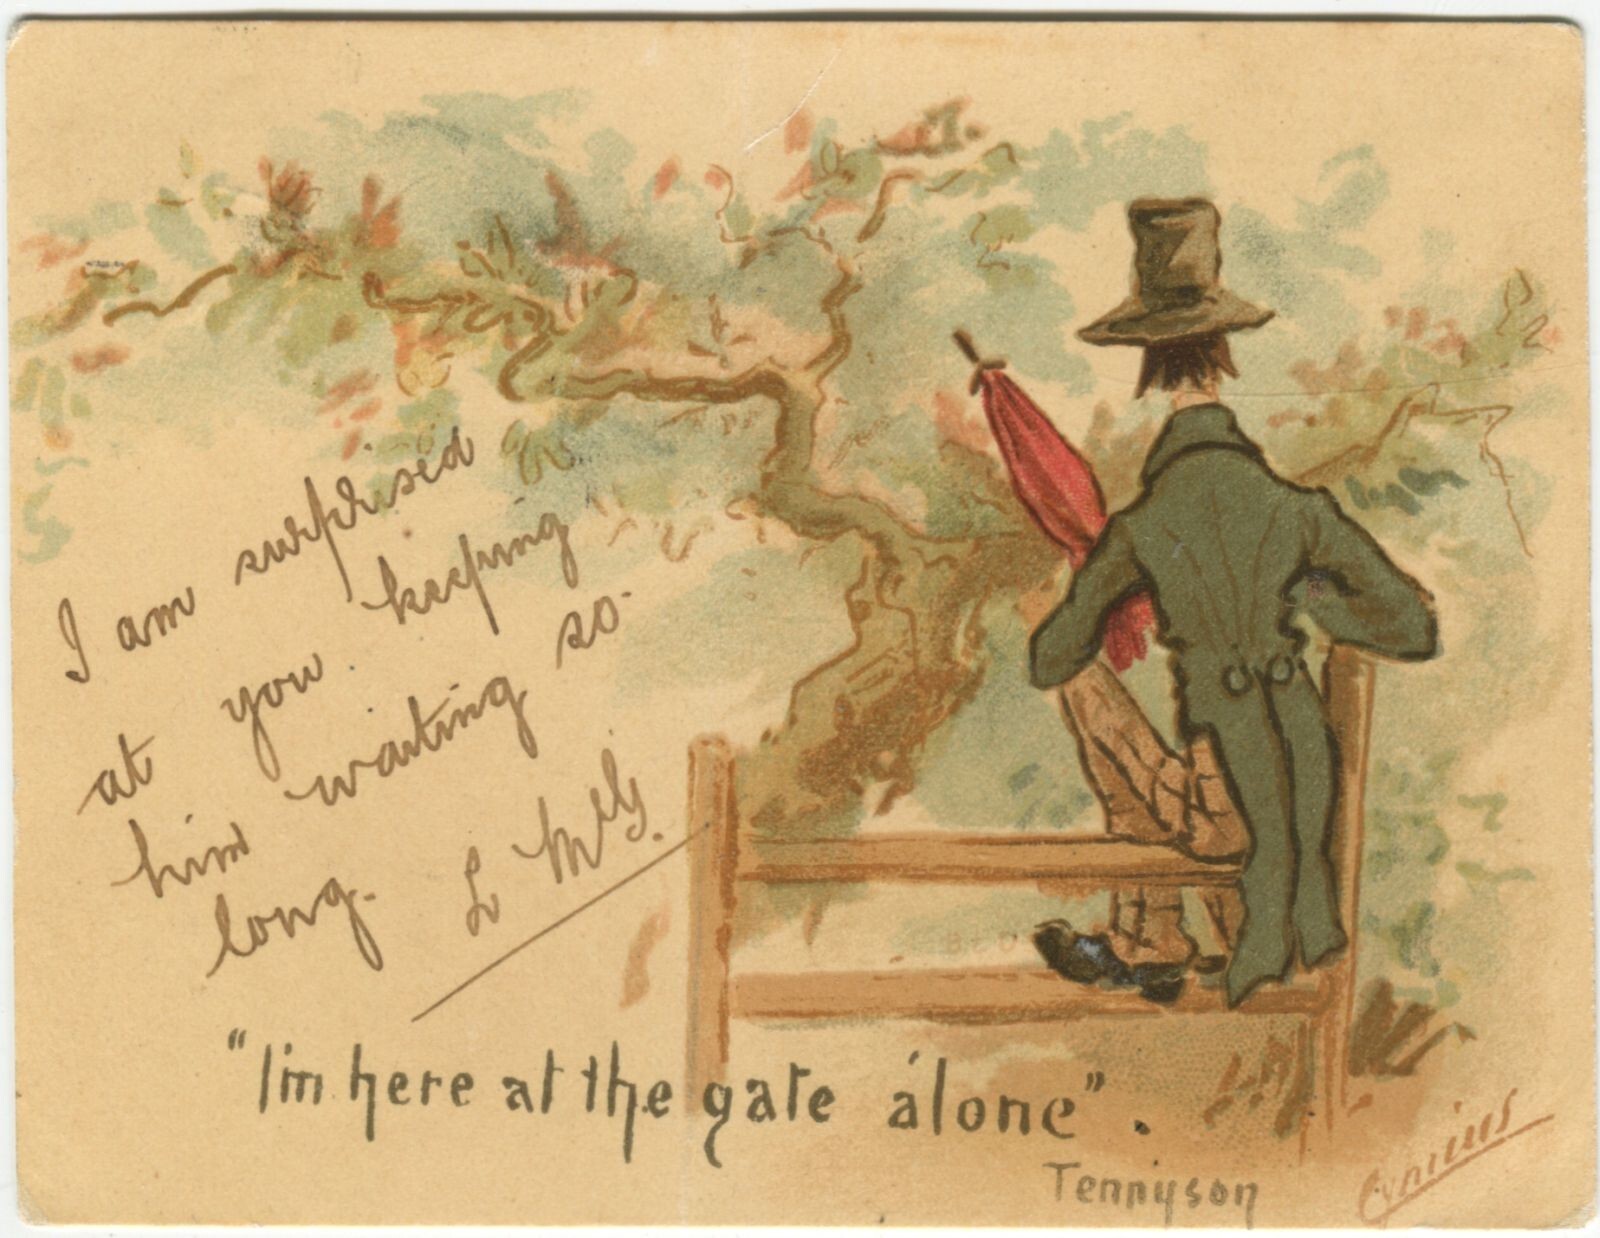 I am surprised
at you keeping
him waiting so
long.
L McG.
"I'm here at the gate alone".
Tennyson
Cynicus